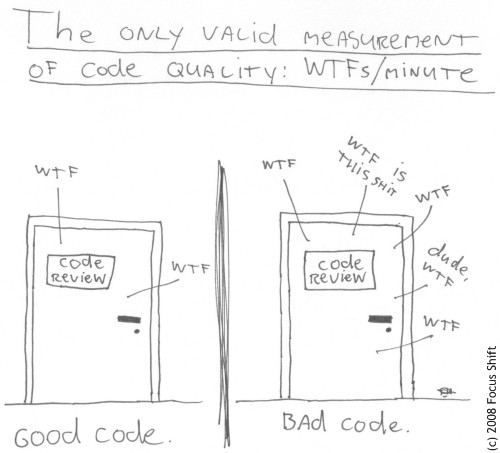 The ONLY VALID MEASUREMENT
OF Code QUALITY: WTFs/MINUTE
WTF
Code
REVIEW
WTF
GOOD CODE.
WTF
WTF IS
THIS SHIT
WTF
Code
REVIEW
dude,
WTF
WTF
BAd CODE.
(c) 2008 Focus Shift